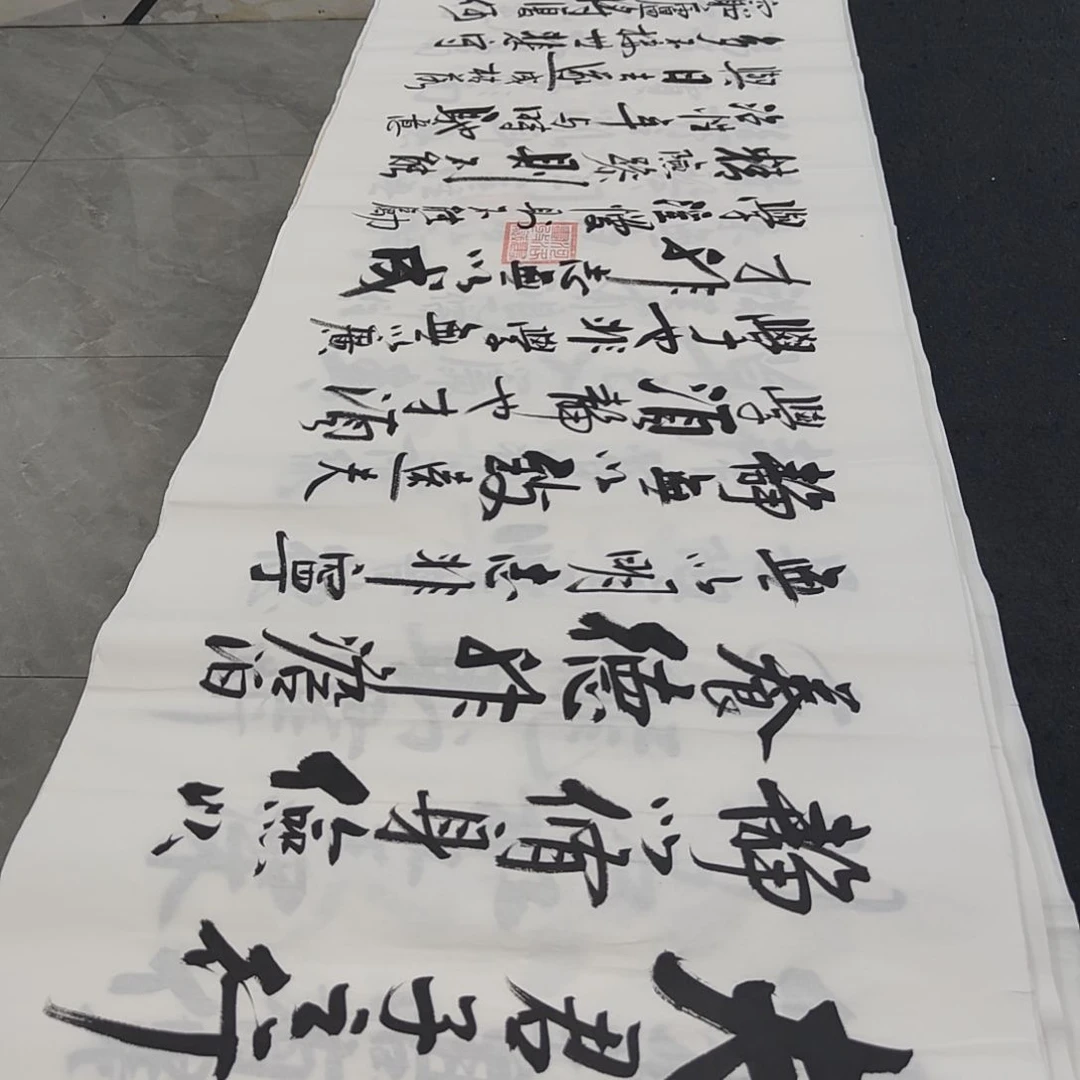 夫君子之行
靜以脩身儉以
養德非澹泊
無以明志非寧
靜無以致遠夫
學須靜也才須
學也非學無以廣
才非志無以成
學淫慢則不能勵
精險躁則不能
治性年与時馳意
與日去遂成枯落
多不接世悲守
窮廬將復何